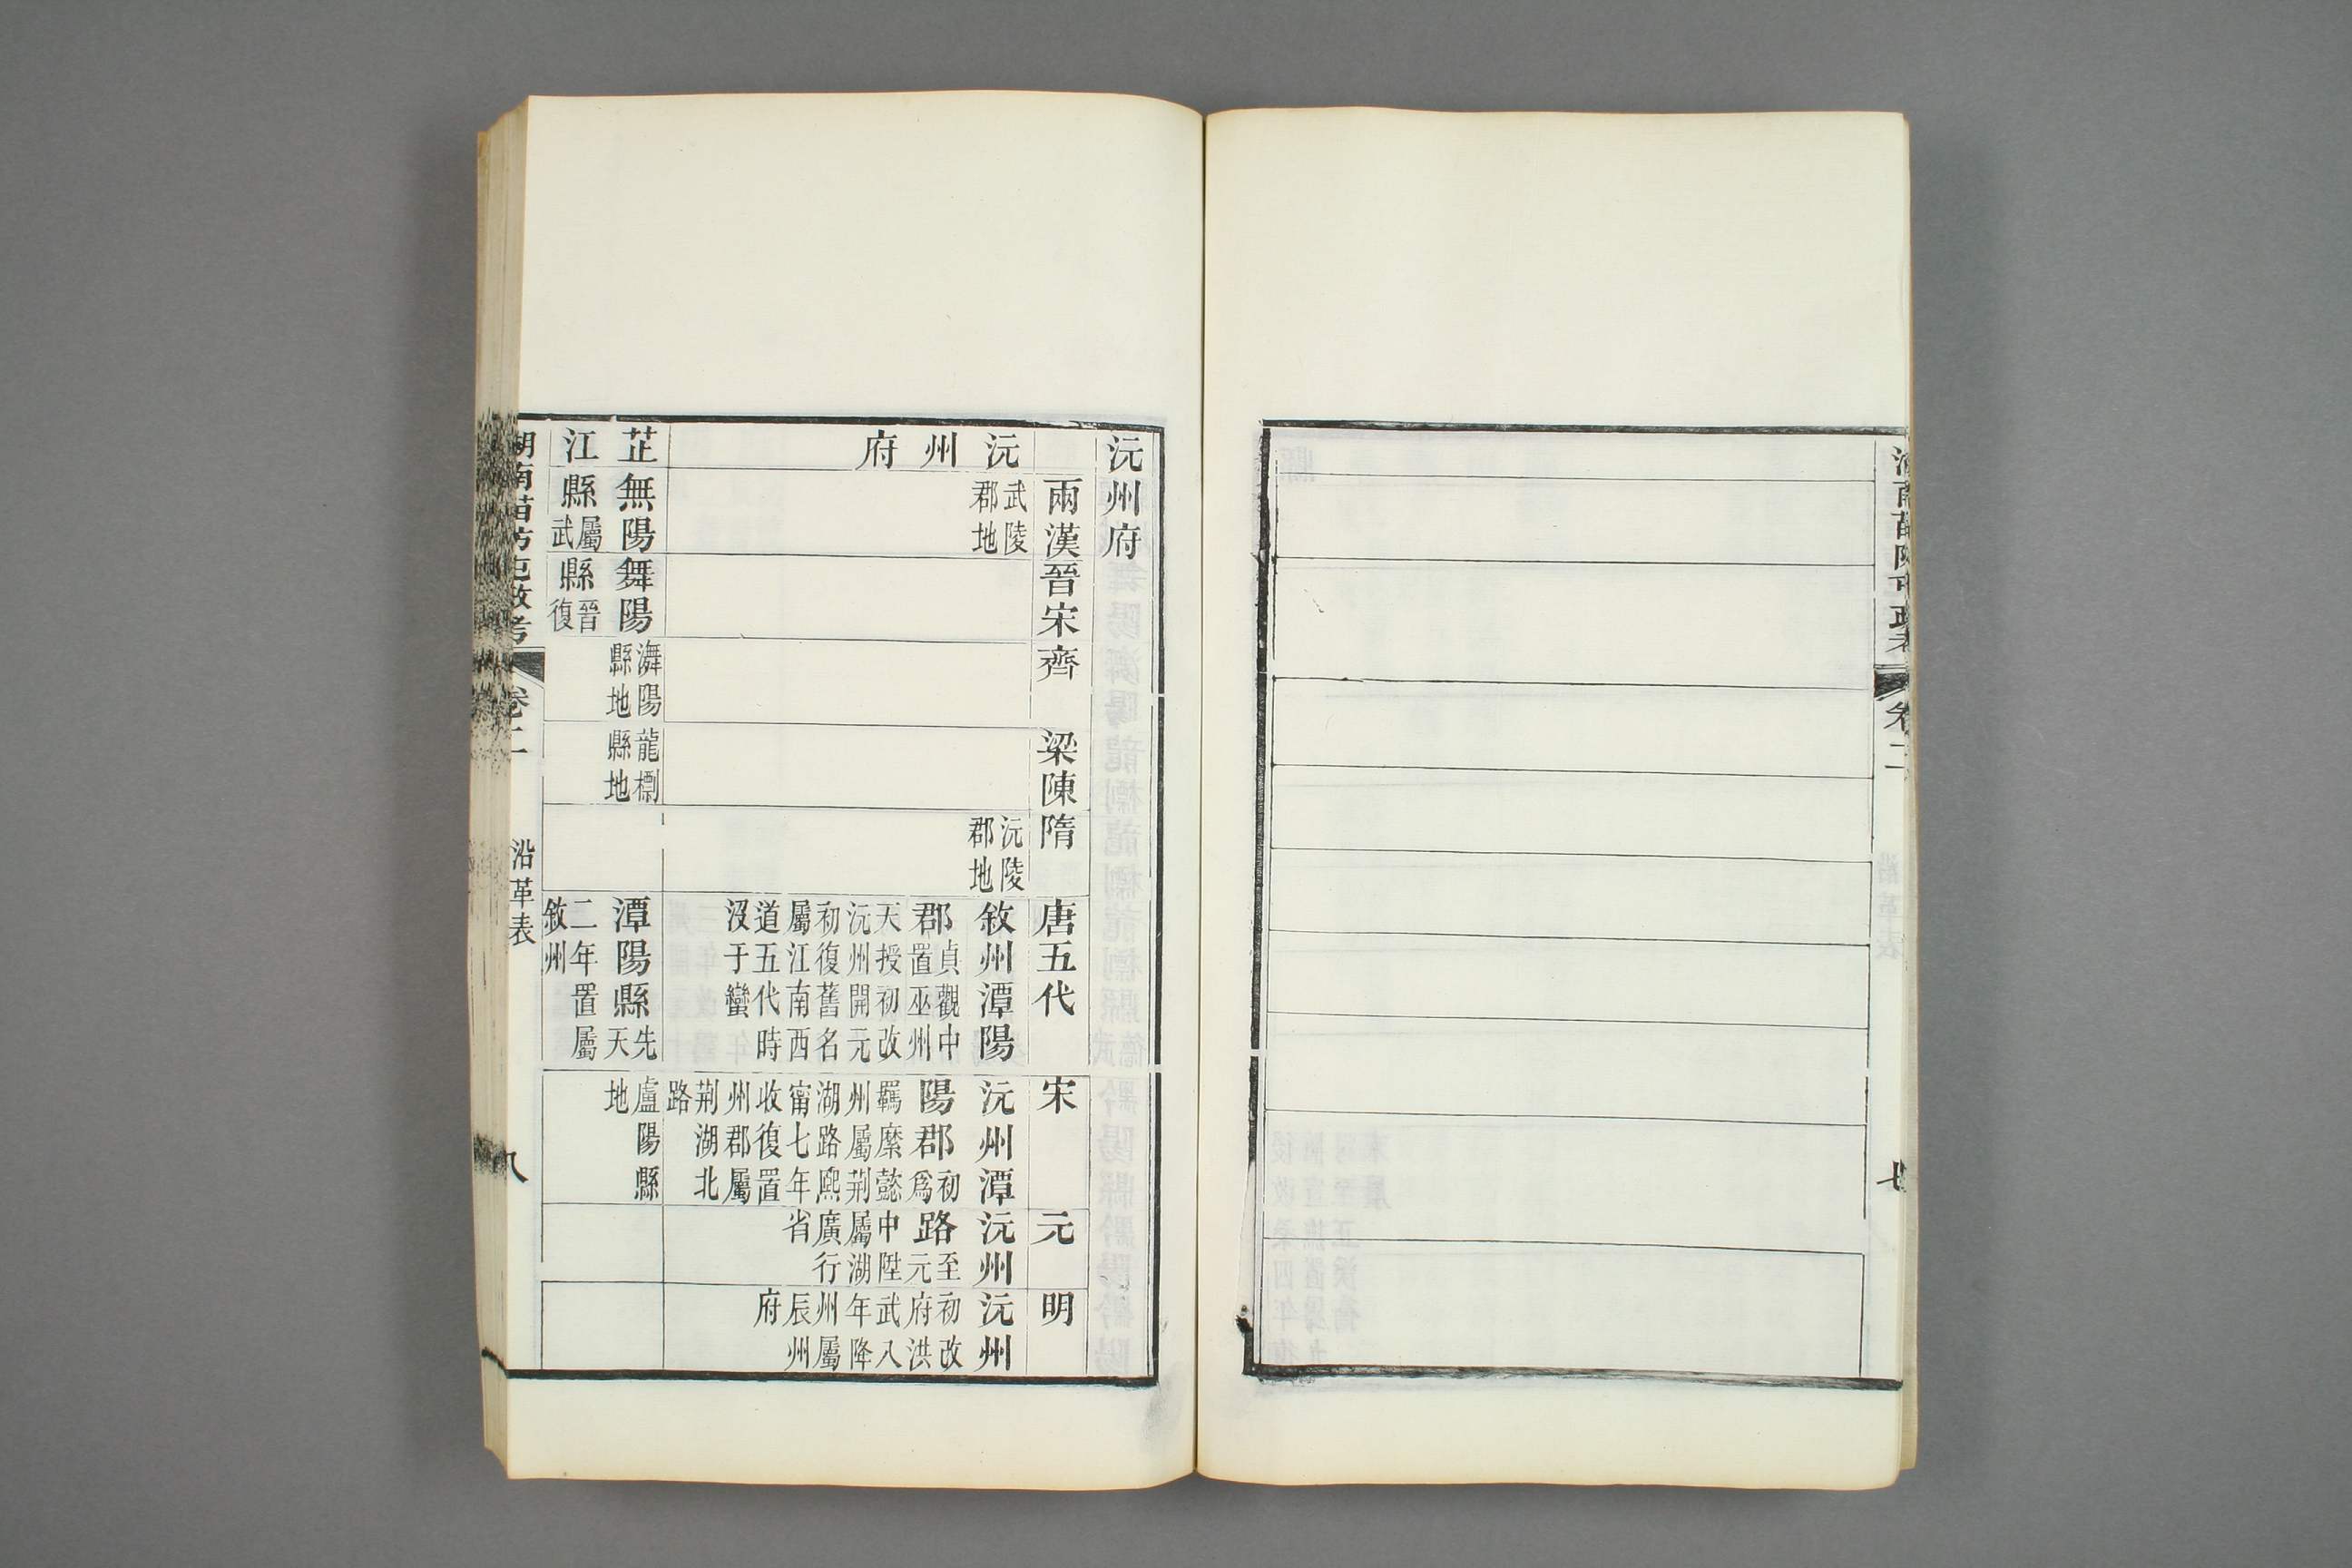 湖南苗防屯政考 卷二 七
沅州府
兩漢
晉宋
齊
梁陳
隋
唐五代
宋
元
明
沅州府
武陵
郡地
沅陵
郡地
敘州潭陽
郡
貞觀中
置巫州
天授初改
沅州開元
初復舊名
屬江南西
道五代時
沒于蠻
沅州潭
陽郡
初
爲
羈縻懿
州屬荆
湖路熙
甯七年
收復置
州郡屬
荆湖北
路
沅州
路
至
元
中陞
屬湖
廣行
省
沅州
初改
府洪
武八
年降
州屬
辰州
府
芷江
無陽
縣
屬
武
舞陽
縣
晉
復
潕陽
縣地
龍檦
縣地
潭陽縣
先
天
二年置屬
敘州
盧陽縣
地
湖南苗防屯政考 卷二 沿革表 八